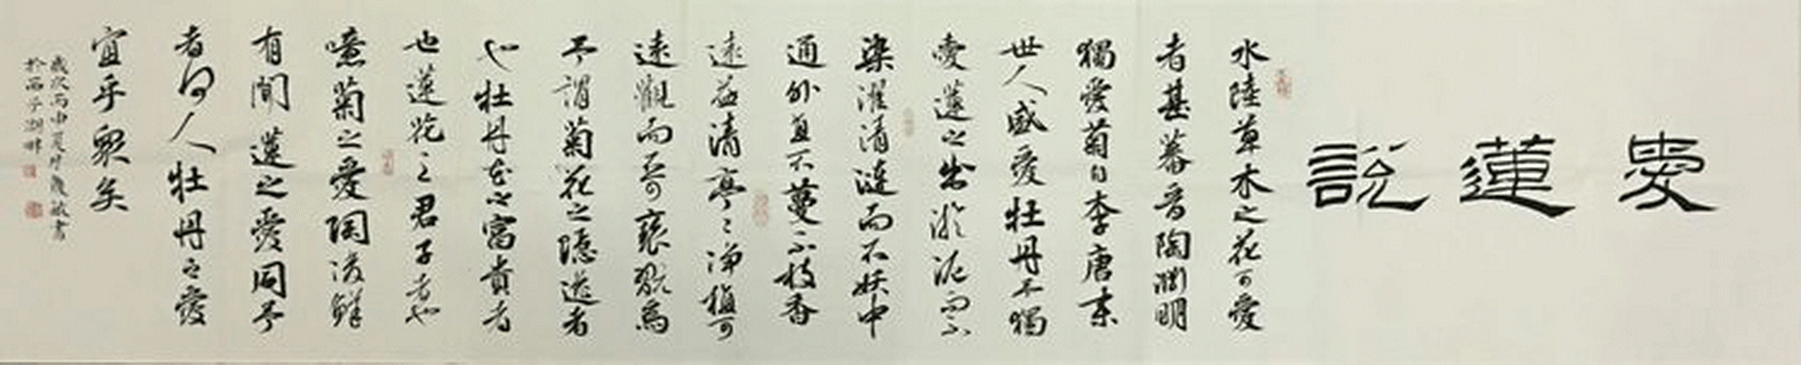 愛蓮說
水陸草木之花可愛
者甚蕃晉陶淵明
獨愛菊自李唐來
世人盛愛牡丹予獨
愛蓮之出淤泥而不
染濯清漣而不妖中
通外直不蔓不枝香
遠益清亭〻淨植可
遠觀而不可褻翫焉
予謂菊花之隱逸者
也牡丹花之富貴者
也蓮花之君子者也
噫菊之愛陶後鮮
有聞蓮之愛同予
者何人牡丹之愛
宜乎眾矣
歲次丙申夏敏書
於西子湖畔